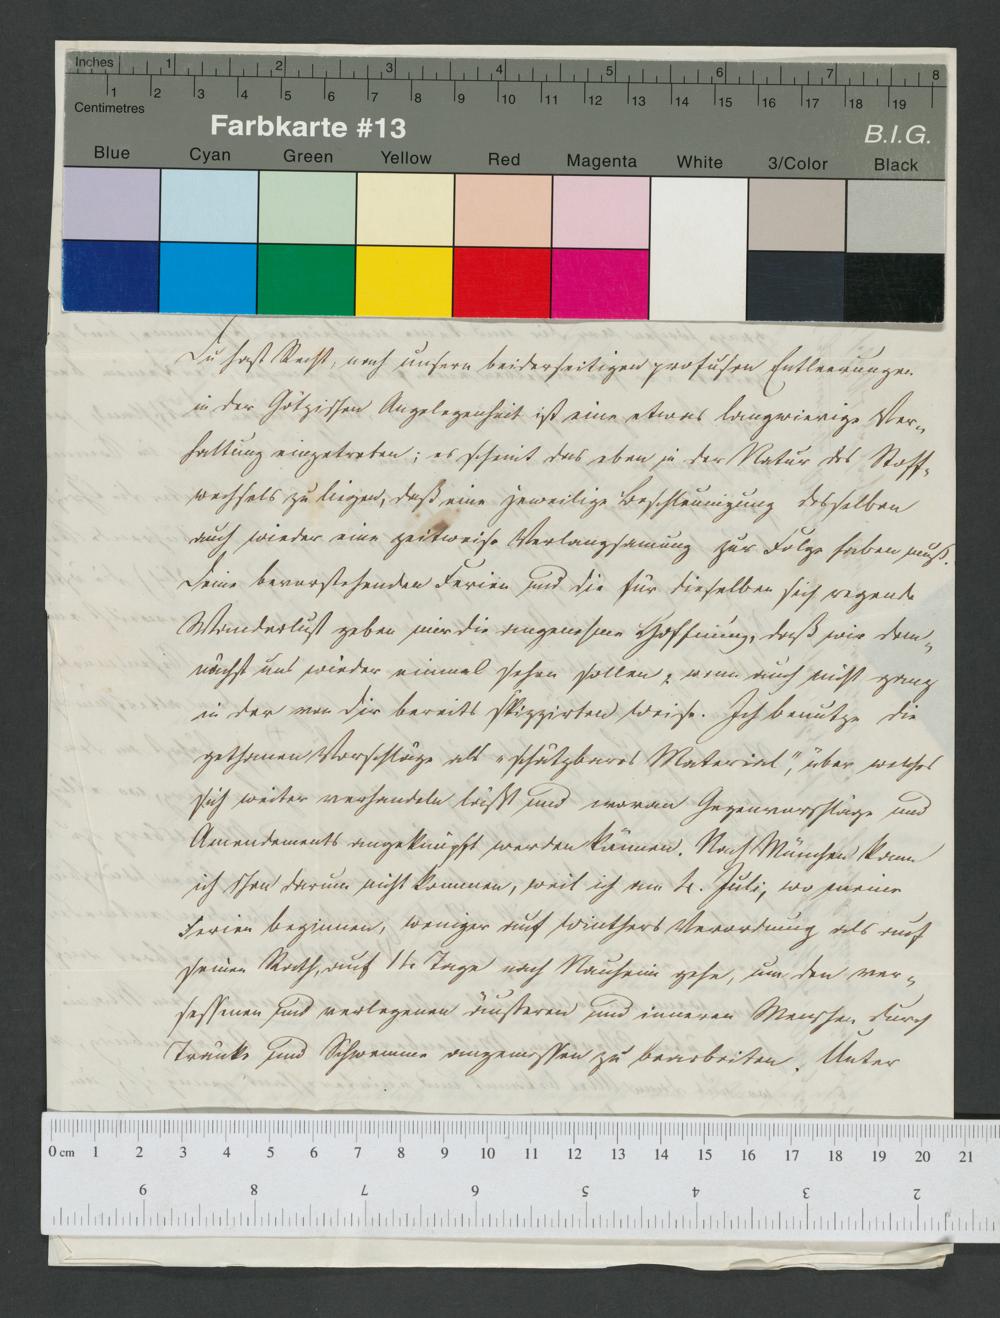 Inches 1 2 3 4 5 6 7 8
1 2 3 4 5 6 7 8 9 10 11 12 13 14 15 16 17 18 19
Centimetres
Farbkarte #13
B.I.G.
Blue Cyan Green Yellow Red Magenta White 3/Color Black
Du hast Recht, nach unsern beiderseitigen profusen Entleerungen
in der Angelegenheit ist eine etwas langwierige Ver-
haltung eingetreten; es scheint das eben in der Natur des Stoff-
wechsels zu liegen, daß eine jeweilige Beschleunigung desselben
auch wieder eine zeitweise Verlangsamung zur Folge haben muß.
Deine bevorstehenden Ferien und die für dieselben sich regende
Wanderlust geben mir die angenehme Hoffnung, daß wir dem-
nächst uns wieder einmal sehen sollen, wenn auch nicht ganz
in der von dir bereits skizzirten Weise. Ich benutze die
gethanen Vorschläge als „schätzbares Material", über welches
sich weiter verhandeln läßt und woran Gegenvorschläge und
Amendements angeknüpft werden können. Nach München kann
ich schon darum nicht kommen, weil ich am Juli, wo meine
Ferien beginnen, weniger auf Winthers Verordnung als auf
seinen Rath, auf 14 Tage nach Nauheim gehe, um den ver-
sessenen und verlegenen äußeren und inneren Menschen durch
Tränke und Schwemme angemessen zu bearbeiten. Unter
0 cm 1 2 3 4 5 6 7 8 9 10 11 12 13 14 15 16 17 18 19 20 21
9 8 7 6 5 4 3 2